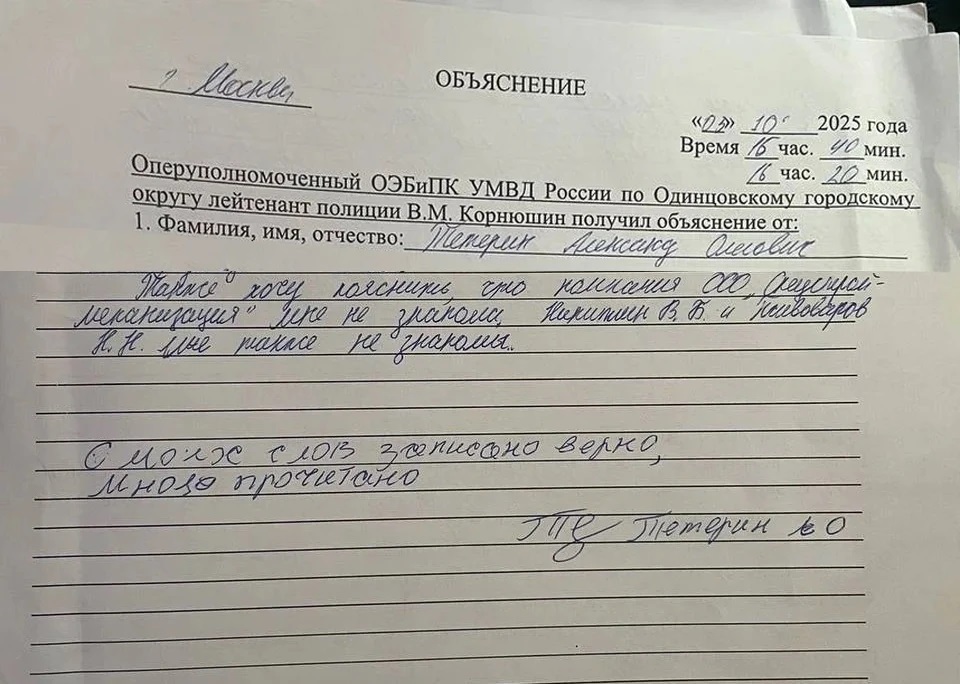 г. Москва
ОБЪЯСНЕНИЕ
«03» 10 2025 года
Время 15 час. 40 мин.
16 час. 20 мин.
Оперуполномоченный ОЭБиПК УМВД России по Одинцовскому городскому
округу лейтенант полиции В.М. Корнюшин получил объяснение от:
1. Фамилия, имя, отчество: Тетерин Александр
Также хочу пояснить, что компания ООО "Спецстрой-
механизация" мне не знакома, Никитин В.Б. и Пивоваров
Н.Н. мне также не знакомы.
С моих слов записано верно,
мною прочитано
Тетерин О